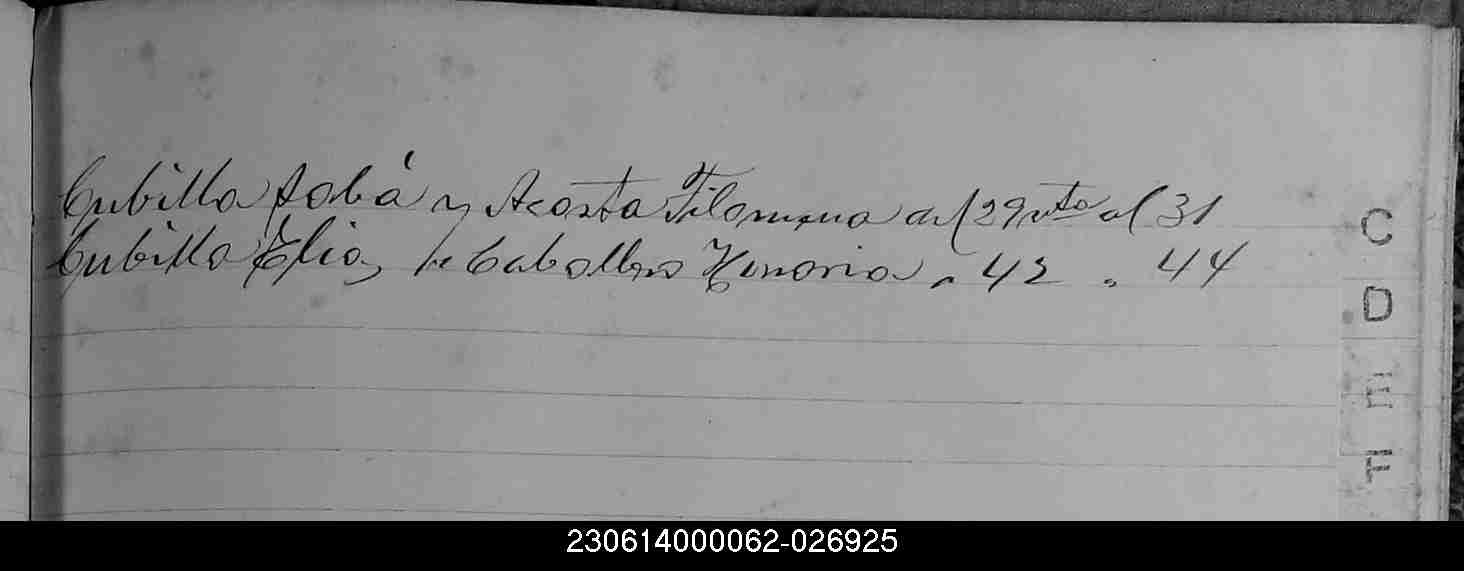 Cubilla Sabá y Acosta Filomena del 29 vto al 31
Cubilla Elias, Caballero Honoria " 42 " 44
C
D
E
F
230614000062-026925